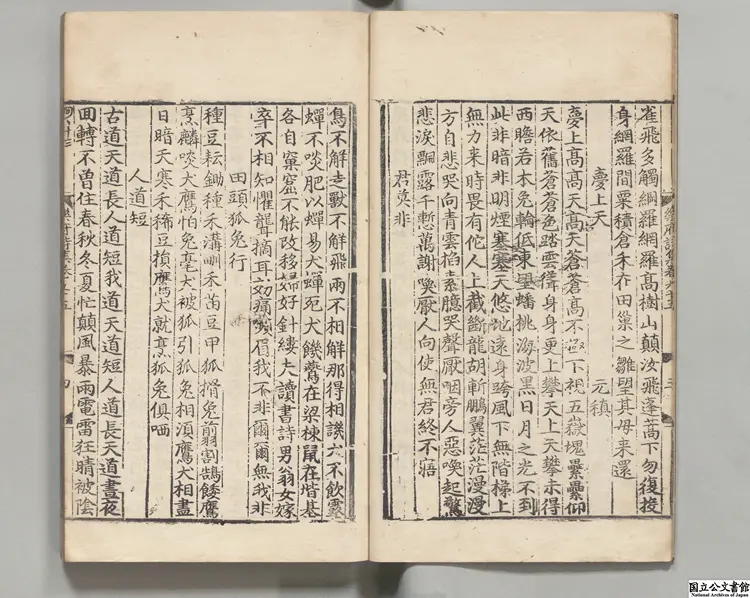 雀飛多觸網羅網羅高樹山顛汝飛蓬蒿下勿復投
身網羅間粟積倉禾在田巢之雛望其母来還
夢上天
元稹
夢上高高天高天蒼蒼高不極下視五嶽塊纍纍仰
天依舊蒼蒼色踏雲聳身身更上攀天上天攀未得
西瞻若木兔輪低東墨蟠桃海波黒日月之光不到
此非暗非明煙塞塞天悠地遠身跨風下無階梯上
無力来時畏有佗人上截斷龍胡斬鵬翼茫茫漫漫
方自悲哭向青雲掐素臆哭聲厭咽旁人惡喚起驚
悲淚飄露千慙萬謝喚厭人向使無君終不寤
君莫非
鳥不解走獸不解飛兩不相解那得相譏犬不飲露
蟬不啖肥以蟬易犬蟬死犬饑鷰在梁棟鼠在堦基
各自窠窟不能改移婦好針縷夫讀書詩男翁女嫁
卒不相知懼聾摘耳効痛嚬眉我不非爾爾無我非
田頭狐兔行
種豆耘鋤種禾溝甽禾苗豆甲狐揹兔翦割鵠餧鷹
烹麟啖犬鷹怕兔毫犬被狐引狐兔相湏鷹犬相盡
日暗天寒禾稀豆損鷹犬就烹狐兔俱哂
人道短
古道天道長人道短我道天道短人道長天道晝夜
回轉不曽住春秋冬夏忙顛風暴雨電雷狂晴被陰
国立公文書館
National Archives of Japan